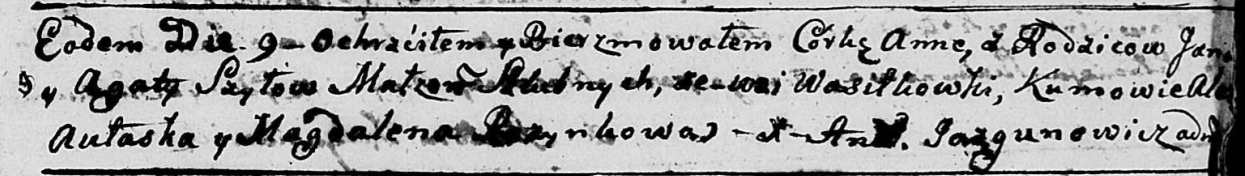 Eodem Die 9 Ochrzciłem y Bierzmowałem Córkę Annę, z Rodzicow Jana
y Agaty Szytow Małżon Slubnych, ze wsi Wasiłkowki, Kumowie Ale
Autaska y Magdalena X An. Jazgunowicz adm